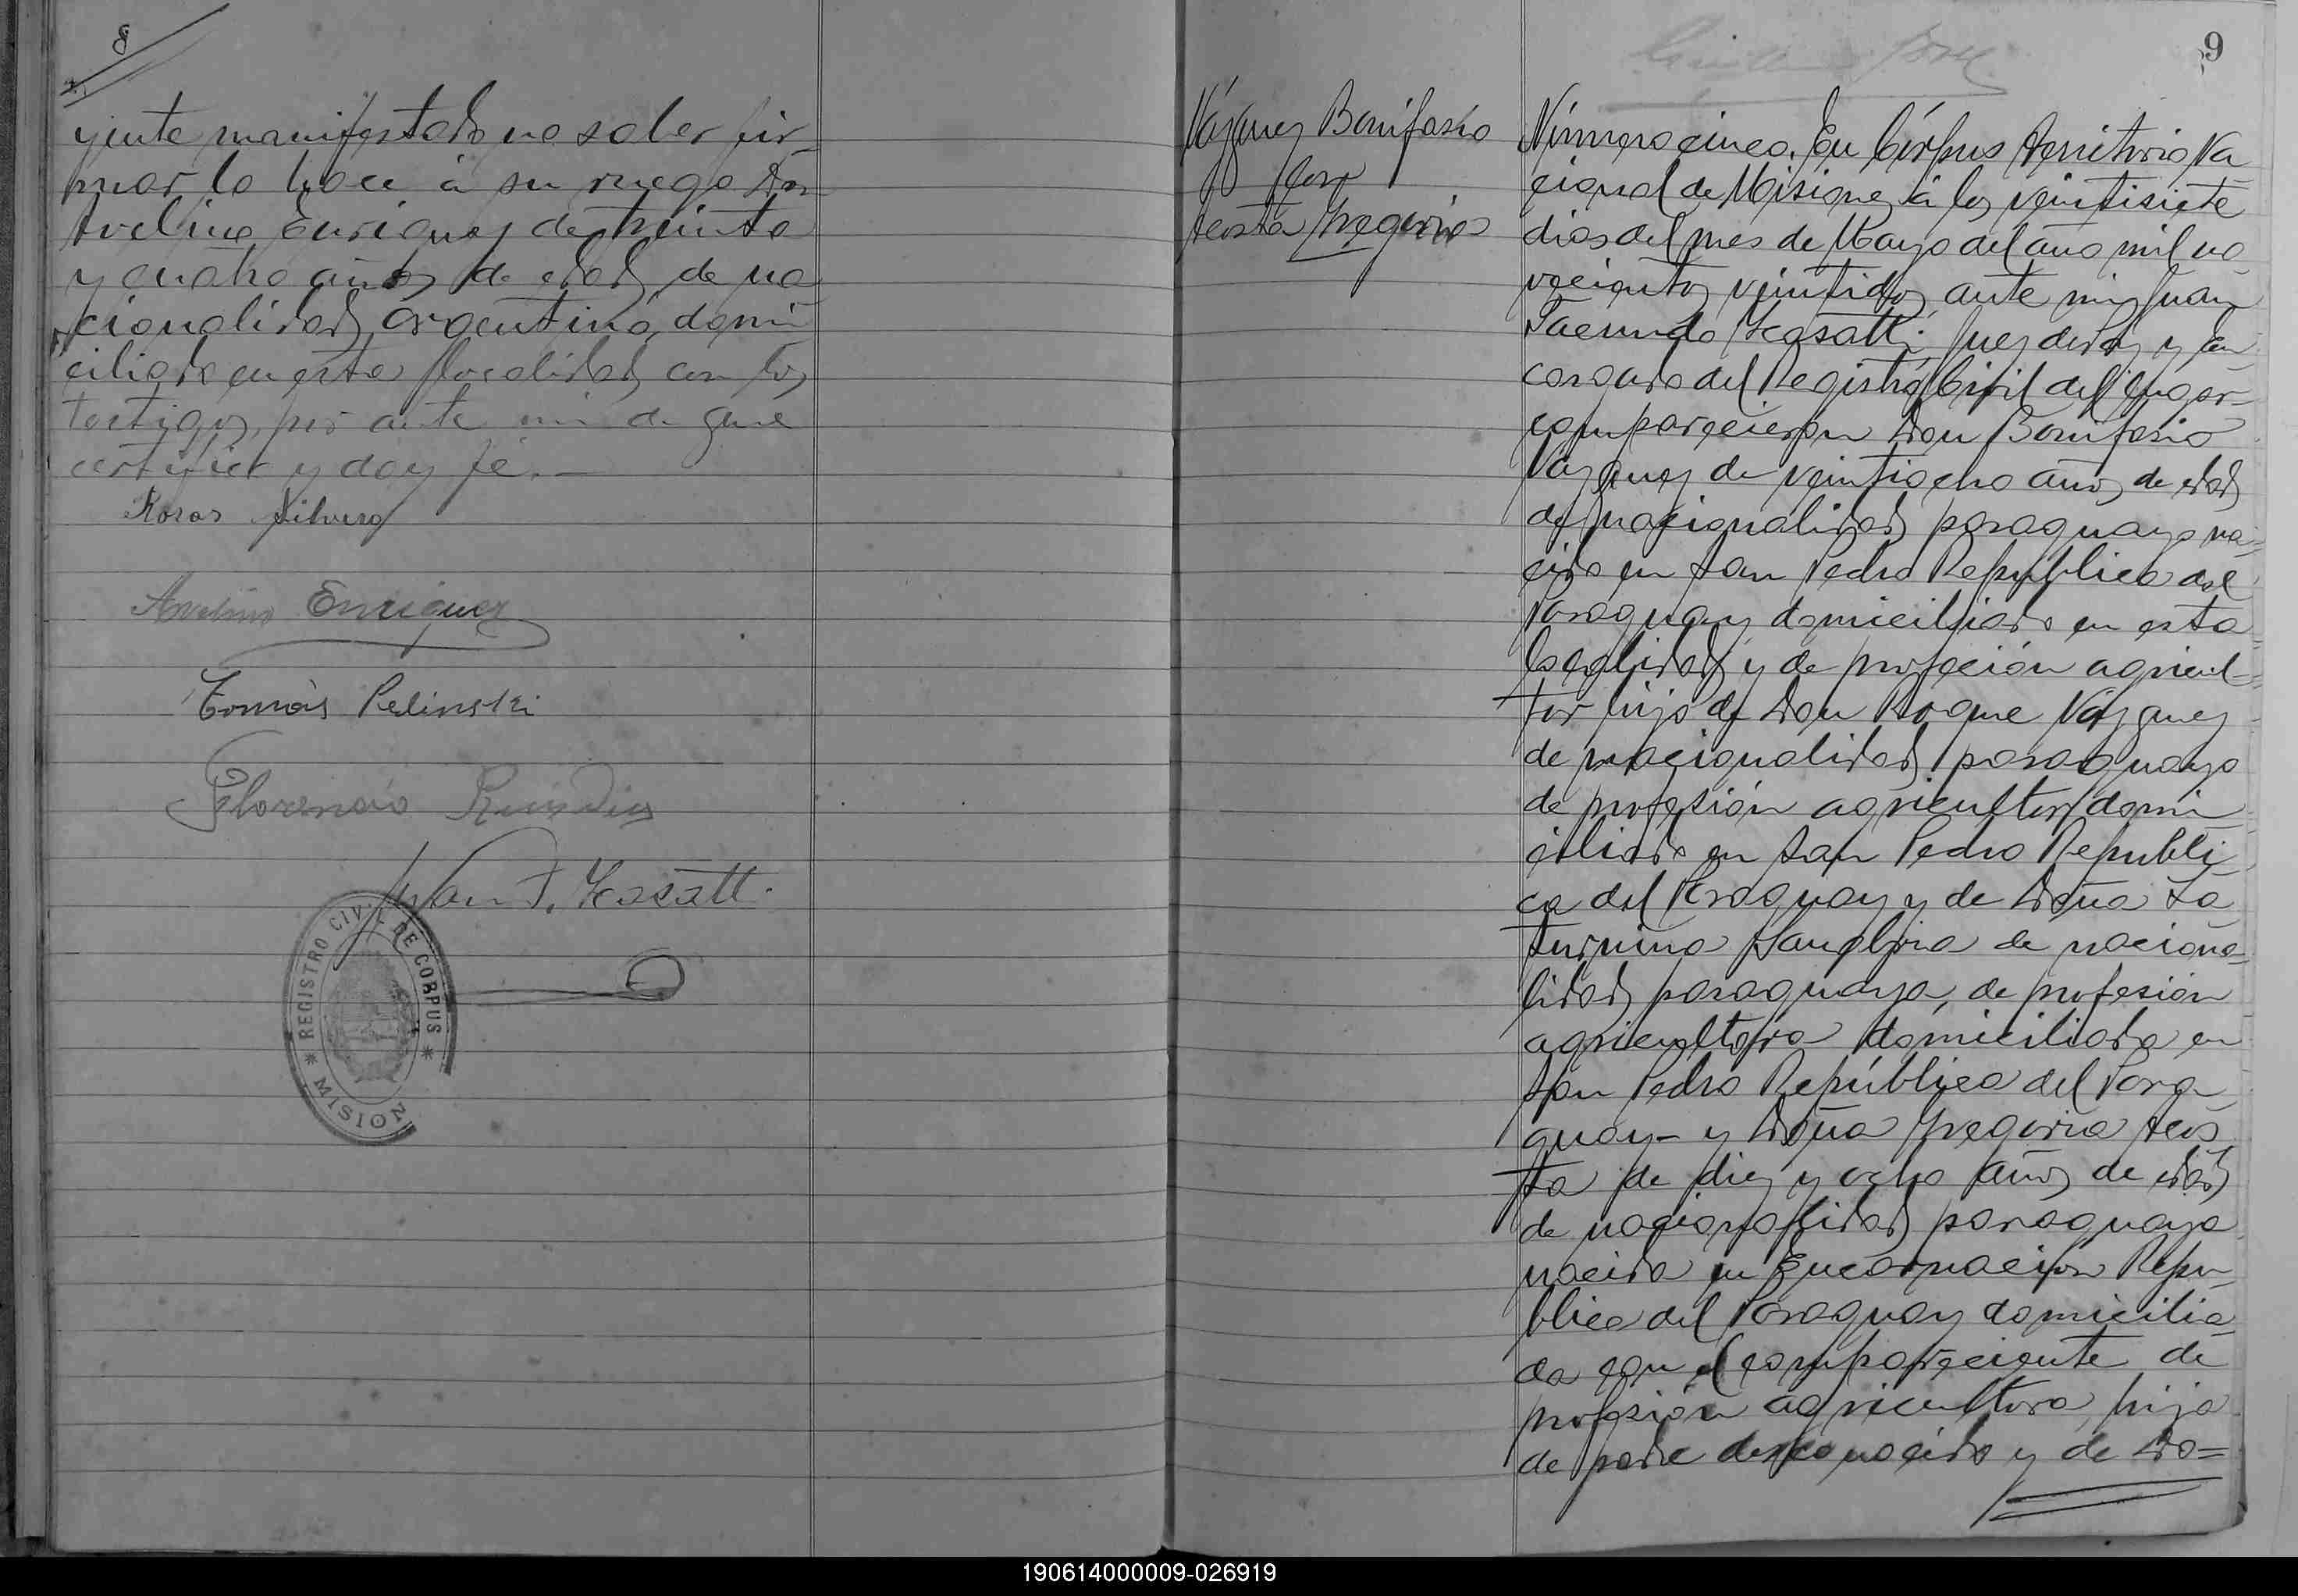 8
yente manifestado no saber fir-
mar lo hace á su ruego Don
Avelino Enriquez de treinta
y cuatro años de edad de na
cionalidad argentina, domi
ciliado en esta localidad con los
testigos, por ante mi de que
certifico y doy fé.-
Rosas Silvero
Avelino Enriquez
Tomás Pelinski
Florencio
Juan F. Hasatt
REGISTRO CIVIL DE CORPUS * MISION *
9
Vázquez Bonifasio
con
Acosta Gregoria
Número cinco. En Córpus Territorio Na
cional de Misiones á los veintisiete
dias del mes de Mayo del año mil no-
vecientos veintidos, ante mi, Juan
Facundo Hasatt; Juez de Paz y En
cargado del Registro Civil del lugar
comparecieron Don Bonifasio
Vazquez de veintiocho años de edad
de nacionalidad paraguayo na-
cido en San Pedro Republica del
Paraguay domiciliado en esta
localidad y de profeción agricul-
tor hijo de Don Roque Vázquez
de nacionalidad paraguaya
de profesión agricultor domi
ciliado en San Pedro Republi
ca del Paraguay y de Doña Sa
turnina de naciona-
lidad paraguaya, de profesión
agricultora domiciliada en
San Pedro República del Para
guay- y Doña Gregoria Acos
ta de diez y ocho años de edad
de nacionalidad paraguaya
nacida en Encarnación Repu-
blica del Paraguay domicilia-
da con el compareciente de
profesión agricultora, hija
de padre desconocido y de Do=
190614000009-026919